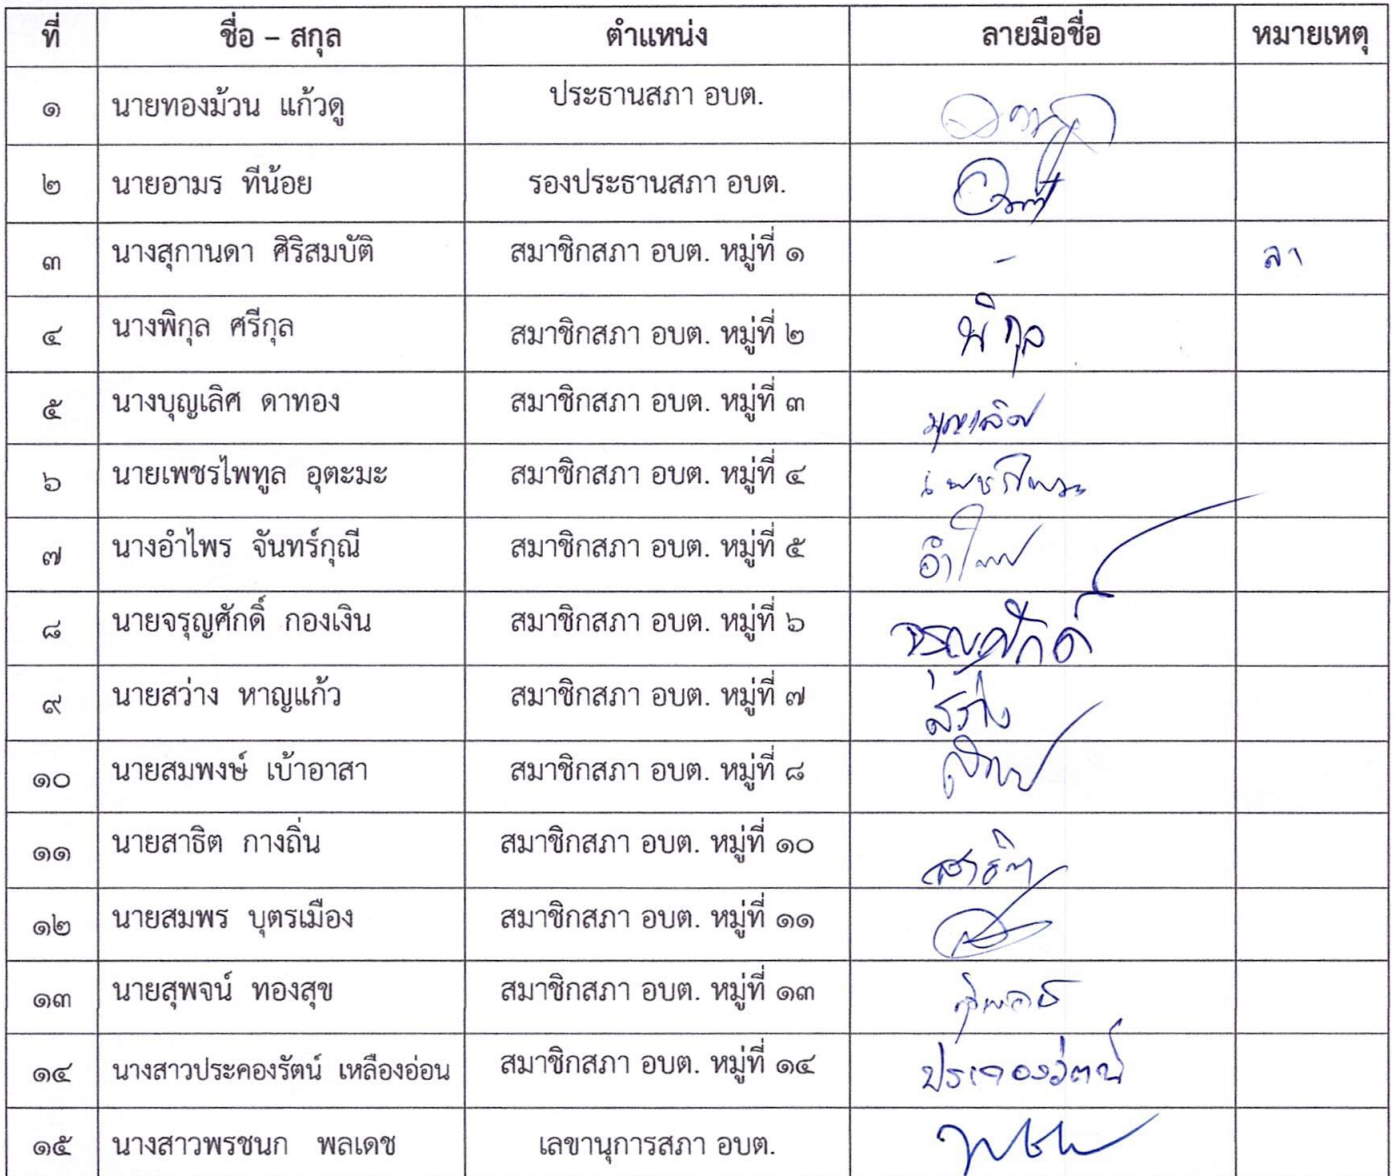 ที่ ชื่อ – สกุล ตำแหน่ง ลายมือชื่อ หมายเหตุ
๑ นายทองม้วน แก้วดู ประธานสภา อบต.
๒ นายอามร ทีน้อย รองประธานสภา อบต.
๓ นางสุกานดา ศิริสมบัติ สมาชิกสภา อบต. หมู่ที่ ๑ - ลา
๔ นางพิกุล ศรีกุล สมาชิกสภา อบต. หมู่ที่ ๒ พิกุล
๕ นางบุญเลิศ ดาทอง สมาชิกสภา อบต. หมู่ที่ ๓ บุญเลิศ
๖ นายเพชรไพทูล อุตะมะ สมาชิกสภา อบต. หมู่ที่ ๔
๗ นางอำไพร จันทร์กุณี สมาชิกสภา อบต. หมู่ที่ ๕ อำไพร
๘ นายจรุญศักดิ์ กองเงิน สมาชิกสภา อบต. หมู่ที่ ๖ จรุญศักดิ์
๙ นายสว่าง หาญแก้ว สมาชิกสภา อบต. หมู่ที่ ๗ สว่าง
๑๐ นายสมพงษ์ เบ้าอาสา สมาชิกสภา อบต. หมู่ที่ ๘
๑๑ นายสาธิต กางถิ่น สมาชิกสภา อบต. หมู่ที่ ๑๐ สาธิต
๑๒ นายสมพร บุตรเมือง สมาชิกสภา อบต. หมู่ที่ ๑๑
๑๓ นายสุพจน์ ทองสุข สมาชิกสภา อบต. หมู่ที่ ๑๓ สุพจน์
๑๔ นางสาวประคองรัตน์ เหลืองอ่อน สมาชิกสภา อบต. หมู่ที่ ๑๔ ประคองรัตน์
๑๕ นางสาวพรชนก พลเดช เลขานุการสภา อบต.